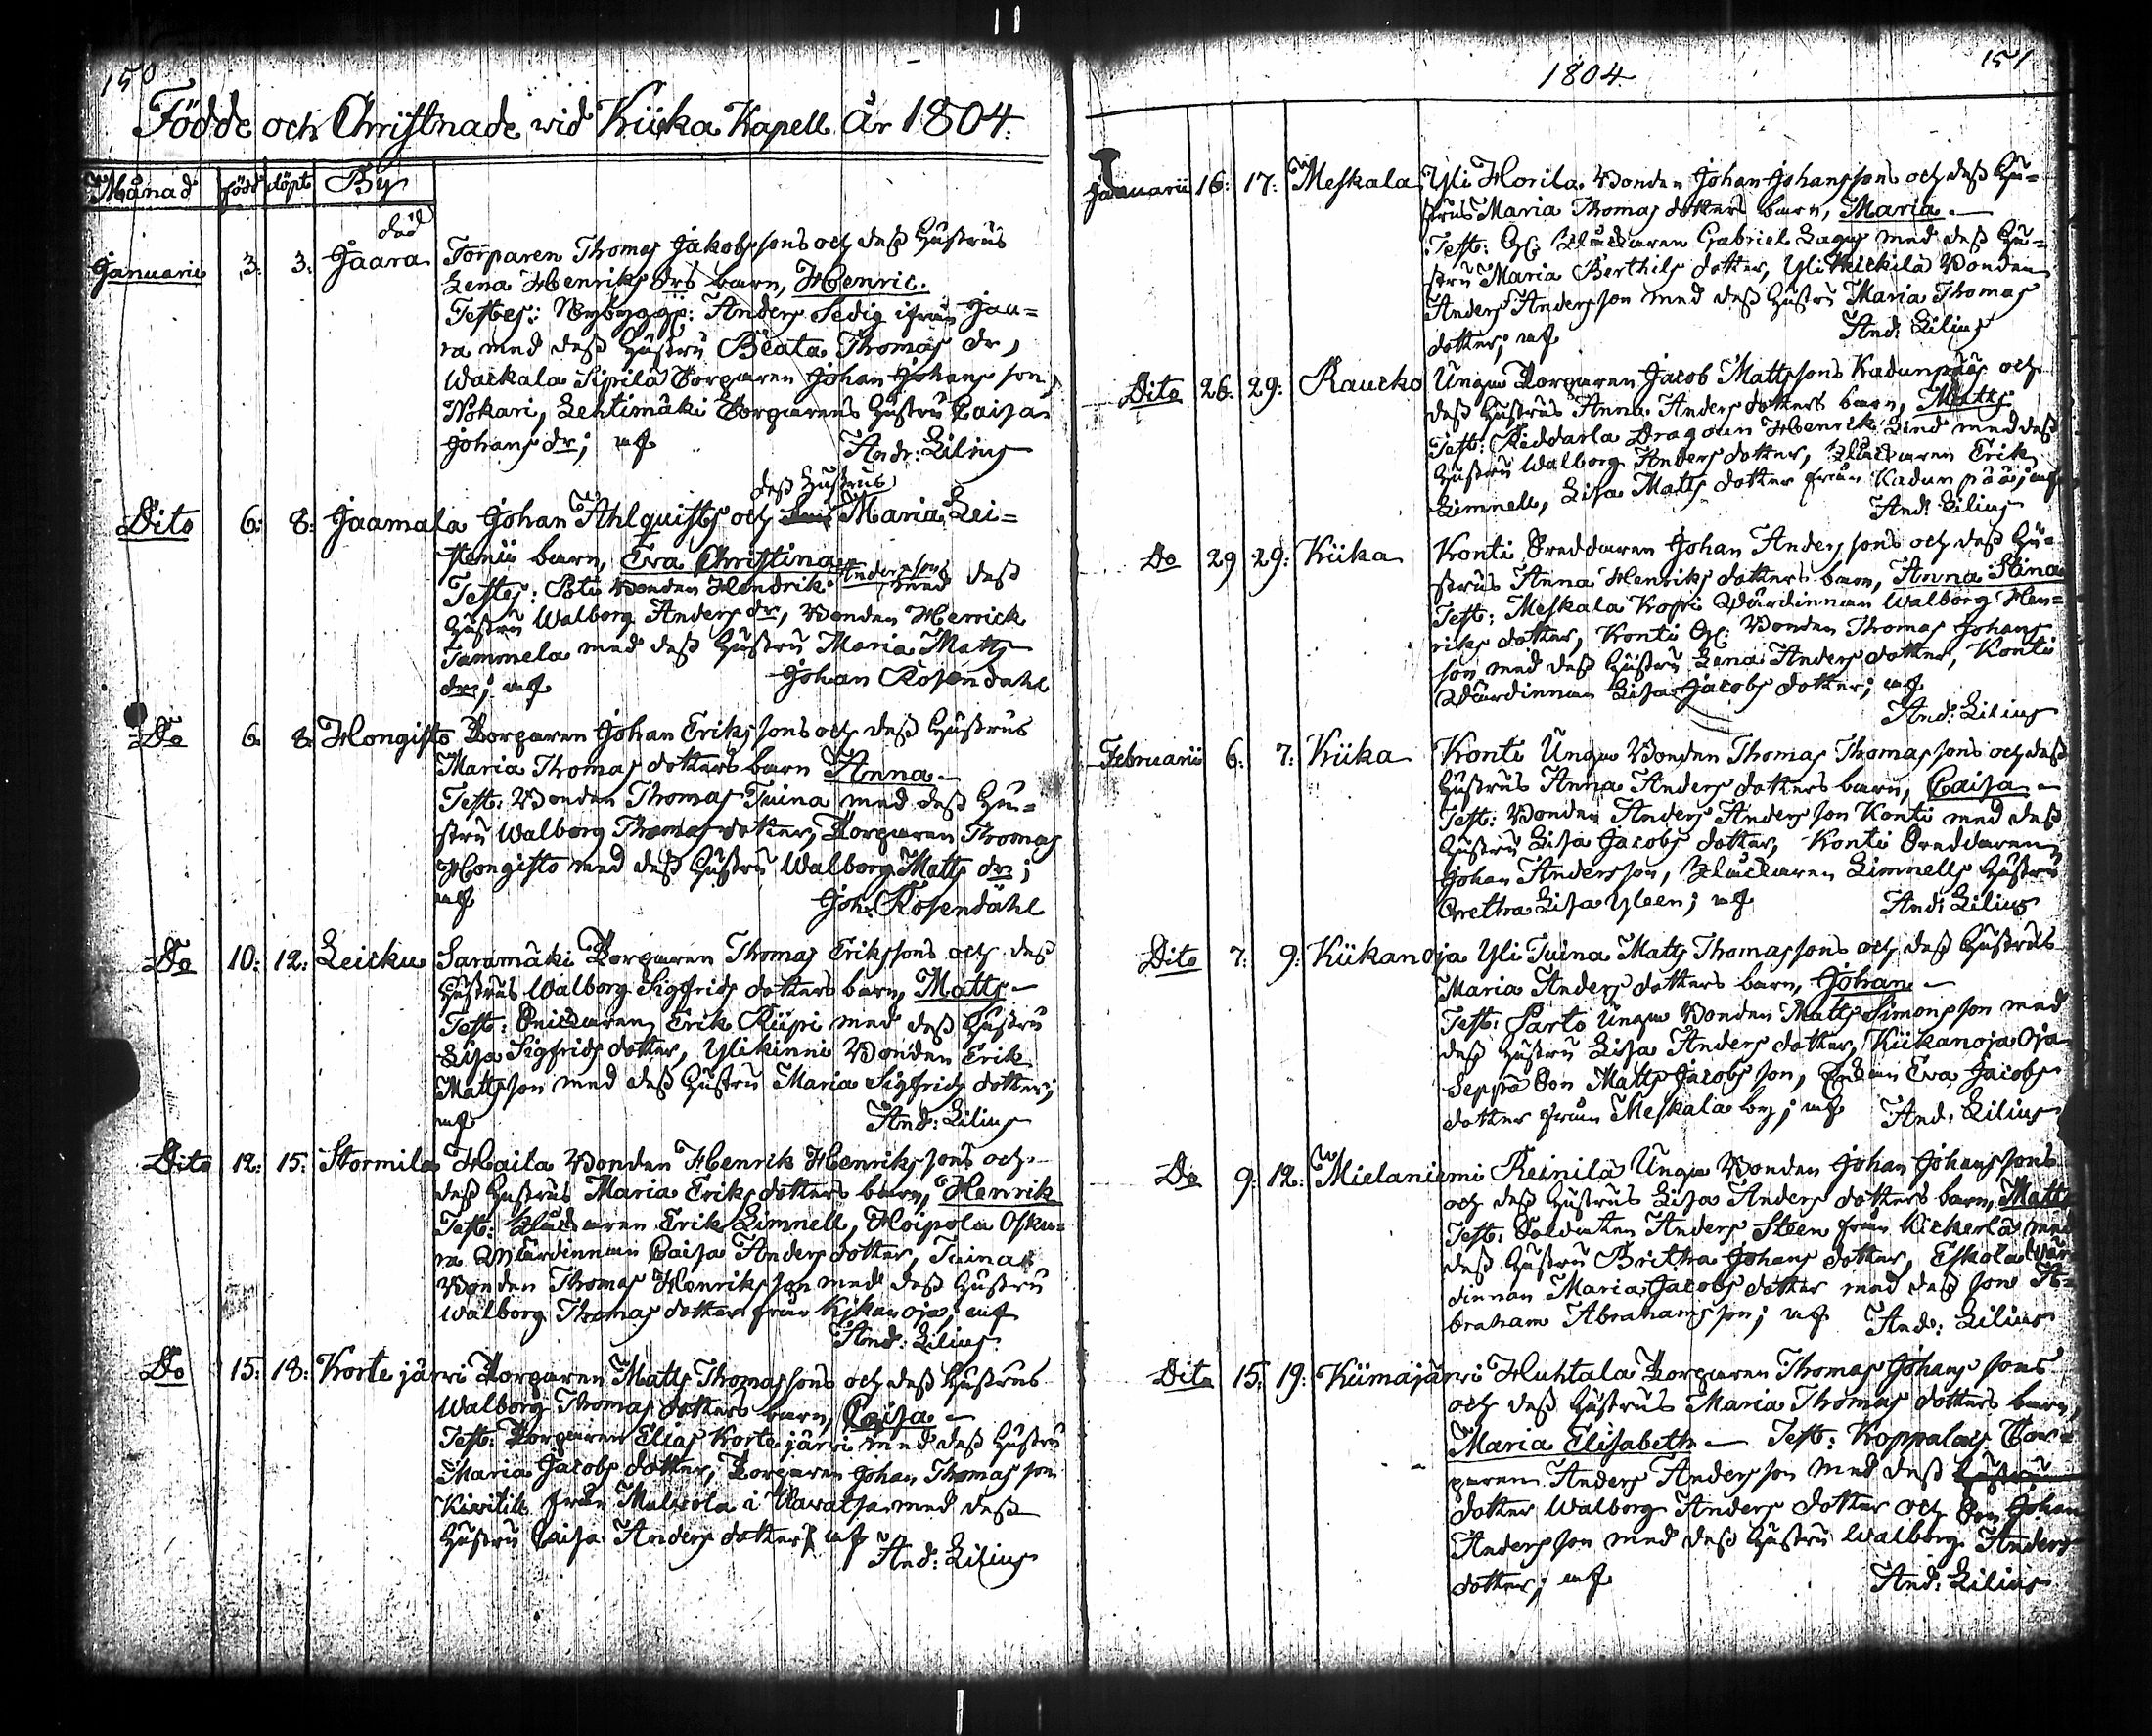 150
Födde och Christnade vid Kiika Kapell År 1804.
Månad född döpt By
död
Januarii 3. 3. Jaara Torparen Thomas Jakobssons och dess Hustrus
Lena Henriks drs barn, Henric.
Testes: Nybygg: Anders Sedig ifrån Jaa=
ra med dess Hustru Beata Thomas dr,
Wackala Sipilä Torparen Johan Johansson,
Nokari, Lehtimäki Torparens Hustru Caisa
Johans dr; utf
Andr: Lilius
dess Hustrus
Dito 6. 8. Jaamala Johan Åhlquists och Maria Lei=
stenii barn, Eva Christina
Testes: Poti Bonden Hendrik Andersson med dess
Hustru Walborg Anders dr, Bonden Henrick
Tammela med dess Hustru Maria Matts
dr; utf Johan Rosendahl
Do 6. 8. Hongisto Torparen Johan Erikssons och dess Hustrus
Maria Thomas dotters barn Anna
Test: Bonden Thomas Tuina med dess Hu=
stru Walborg Thomas dotter, Torparen Thomas
Hongisto med dess Hustru Walborg Matts dr;
utf Joh: Rosendahl
Do 10: 12: Leicku Saramäki Torparen Thomas Erikssons och dess
Hustrus Walborg Sigfrids dotters barn, Matts
Test: Snickaren Erik Riipi med dess Hustru
Lisa Sigfrids dotter, Ylikinni Bonden Erik
Mattsson med dess Hustru Maria Sigfrids dotter;
utf And: Lilius
Dito 12: 15: Stormila Haila Bonden Henrik Henrikssons och
dess Hustrus Maria Eriks dotters barn, Henrik
Test: Klåckaren Erik Limnell, Hoipola Osku=
ra Wärdinnan Caisa Anders dotter, Tuina
Bonden Thomas Henriksson med dess Hustru
Walborg Thomas dotter från Kiikanoja; utf
And: Lilius
Do 15: 18: Kortejärvi Torparen Matts Thomassons och dess Hustrus
Walborg Thomas dotters barn, Caisa
Test: Torparen Elias Kortejärvi med dess Hustru
Maria Jacobs dotter, Torparen Johan Thomas son
från i med dess
Hustru Caisa Anders dotter; utf And: Lilius
1804
151
Januarii 16: 17: Meskala Yli Horila Bonden Johan Johanssons och dess Hu=
strus Maria Thomas dotters barn, Maria
Test: Gl: Klåckaren Gabriel Lagus med dess Hu=
stru Maria Berthils dotter, Yli Heickilä Bonden
Anders Andersson med dess Hustru Maria Thomas
dotter; utf And: Lilius
Dito 26. 29: Raucko Unga Torparen Jacob Mattssons Kadunpääs och
dess Hustrus Anna Anders dotters barn, Matts
Test: Riddarla Dragoun Henrik Lind med dess
Hustru Walborg Anders dotter, Klåckaren Erik
Limnell, Lisa Matts dotter från Kadunpää; utf
And: Lilius
Do 29 29: Kiika Konti Skreddaren Johan Anderssons och dess Hu=
strus Anna Henriks dotters barn, Anna Stina
Test: Meskala Kopsi Wärdinnan Walborg Hen=
riks dotter, Konti Gl: Bonden Thomas Johans
son med dess Hustru Lena Anders dotter, Konti
Wärdinnan Lisa Jacobs dotter; utf
And: Lilius
Februarii 6: 7: Kiika Konti Unga Bonden Thomas Thomassons och dess
Hustrus Anna Anders dotters barn, Caisa
Test: Bonden Anders Andersson Konti med dess
Hustru Lisa Jacobs dotter, Konti Skreddaren
Johan Andersson, Klåckaren Limnells Hustru
Gretha Lisa Yleen; utf And: Lilius
Dito 7: 9: Kiikanoja Yli Tuina Matts Thomassons och dess Hustrus
Maria Anders dotters barn, Johan
Test: Sarto Unga Bonden Matts Simonsson med
dess Hustru Lisa Anders dotter, Kiikanoja Oja
Seppä Son Matts Jacobsson, Enkan Eva Jacobs
dotter från Meskala by; utf And: Lilius
Do 9: 12: Mielaniemi Reinilä Unga Bonden Johan Johanssons
och dess Hustrus Lisa Anders dotters barn, Matts
Test: Soldaten Anders Steen från Kickerlä med
dess Hustru Britha Johans dotter, Eskola Wär=
dinnan Maria Jacobs dotter med dess son A=
braham Abrahamsson; utf And: Lilius
Dito 15: 19: Kiimajärvi Huhtala Torparen Thomas Johanssons
och dess Hustrus Maria Thomas dotters barn,
Maria Elisabeth Test: Koppalais Tor=
paren Anders Andersson med dess Hustru
dotter Walborg Anders dotter och Son Johan
Andersson med dess Hustru Walborg Anders
dotter; utf And: Lilius